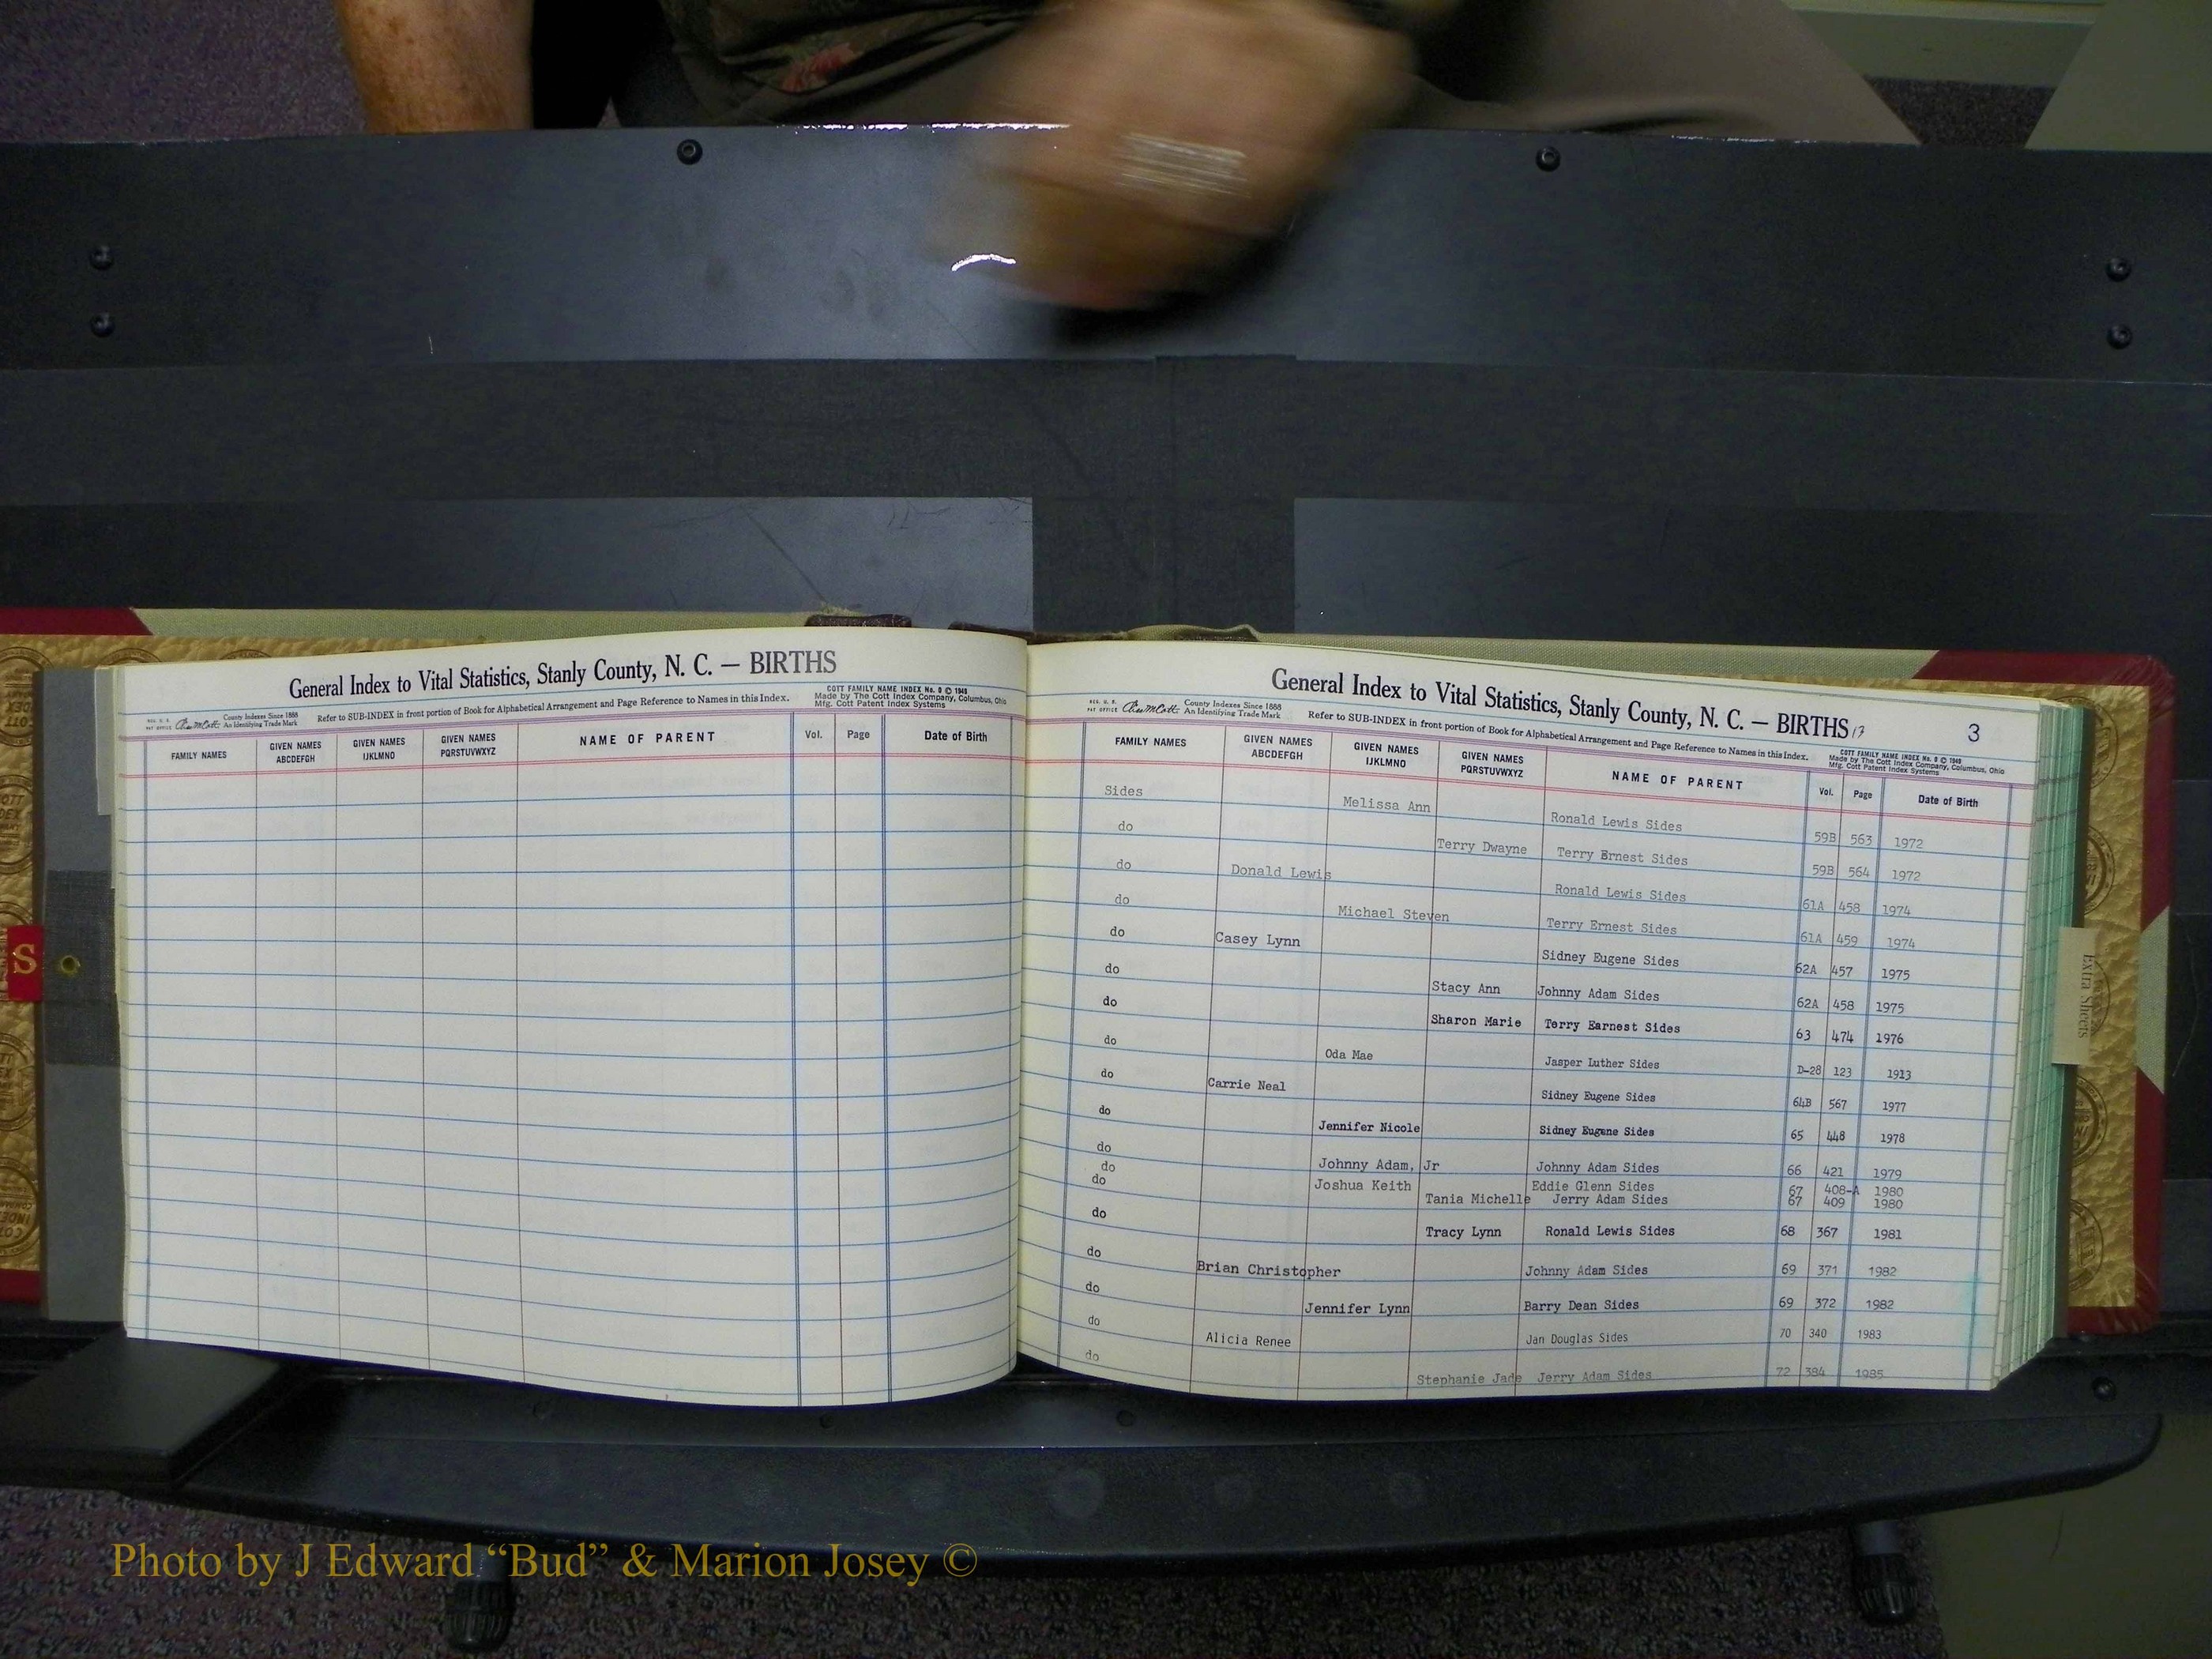 General Index to Vital Statistics, Stanly County, N. C. — BIRTHS
COTT FAMILY NAME INDEX No. 9 © 1949
REG. U. S. PAT OFFICE County Indexes Since 1888 An Identifying Trade Mark
Refer to SUB-INDEX in front portion of Book for Alphabetical Arrangement and Page Reference to Names in this Index.
Made by The Cott Index Company, Columbus, Ohio
Mfg. Cott Patent Index Systems
FAMILY NAMES GIVEN NAMES ABCDEFGH GIVEN NAMES IJKLMNO GIVEN NAMES PQRSTUVWXYZ NAME OF PARENT Vol. Page Date of Birth
S
General Index to Vital Statistics, Stanly County, N. C. — BIRTHS 17 3
REG. U. S. PAT OFFICE County Indexes Since 1888 An Identifying Trade Mark
Refer to SUB-INDEX in front portion of Book for Alphabetical Arrangement and Page Reference to Names in this Index.
COTT FAMILY NAME INDEX No. 9 © 1949
Made by The Cott Index Company, Columbus, Ohio
Mfg. Cott Patent Index Systems
FAMILY NAMES GIVEN NAMES ABCDEFGH GIVEN NAMES IJKLMNO GIVEN NAMES PQRSTUVWXYZ NAME OF PARENT Vol. Page Date of Birth
Sides Melissa Ann Ronald Lewis Sides 59B 563 1972
do Terry Dwayne Terry Ernest Sides 59B 564 1972
do Donald Lewis Ronald Lewis Sides 61A 458 1974
do Michael Steven Terry Ernest Sides 61A 459 1974
do Casey Lynn Sidney Eugene Sides 62A 457 1975
do Stacy Ann Johnny Adam Sides 62A 458 1975
do Sharon Marie Terry Earnest Sides 63 474 1976
do Oda Mae Jasper Luther Sides D-28 123 1913
do Carrie Neal Sidney Eugene Sides 64B 567 1977
do Jennifer Nicole Sidney Eugene Sides 65 448 1978
do Johnny Adam, Jr Johnny Adam Sides 66 421 1979
do Joshua Keith Eddie Glenn Sides 67 408-A 1980
do Tania Michelle Jerry Adam Sides 67 409 1980
do Tracy Lynn Ronald Lewis Sides 68 367 1981
do Brian Christopher Johnny Adam Sides 69 371 1982
do Jennifer Lynn Barry Dean Sides 69 372 1982
do Alicia Renee Jan Douglas Sides 70 340 1983
do Stephanie Jade Jerry Adam Sides 72 384 1985
Extra Sheets
Photo by J Edward “Bud” & Marion Josey ©